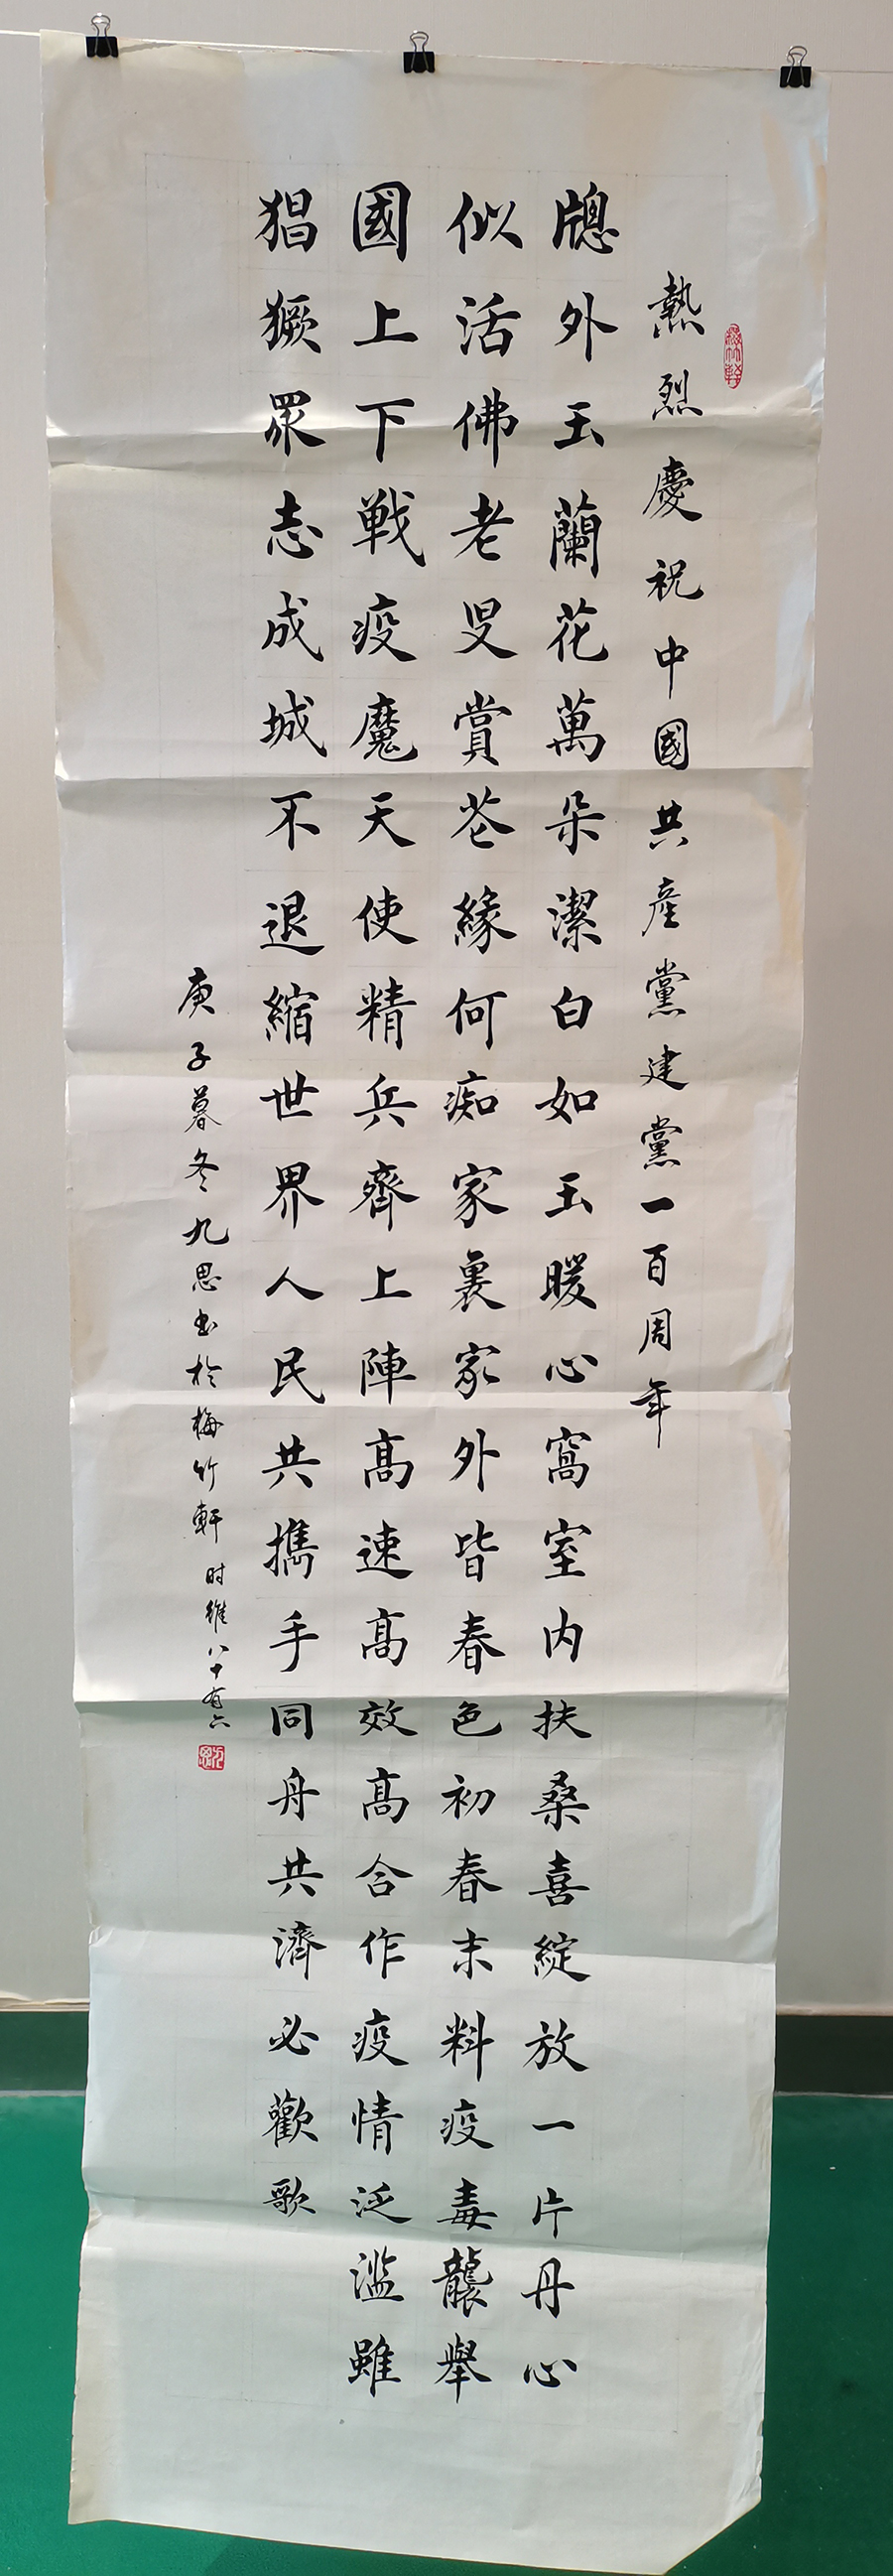 梅竹軒
熱烈慶祝中國共產黨建黨一百周年
牕外玉蘭花萬朵潔白如玉暖心窩室内扶桑喜綻放一片丹心
似活佛老叟賞芲緣何痴家裏家外皆春色初春末料疫毒襲舉
國上下戦疫魔天使精兵齊上陣高速高效高合作疫情泛滥雖
猖獗眾志成城不退縮世界人民共攜手同舟共濟必歡歌
庚子暮冬九思书於梅竹軒时維八十有六
九思